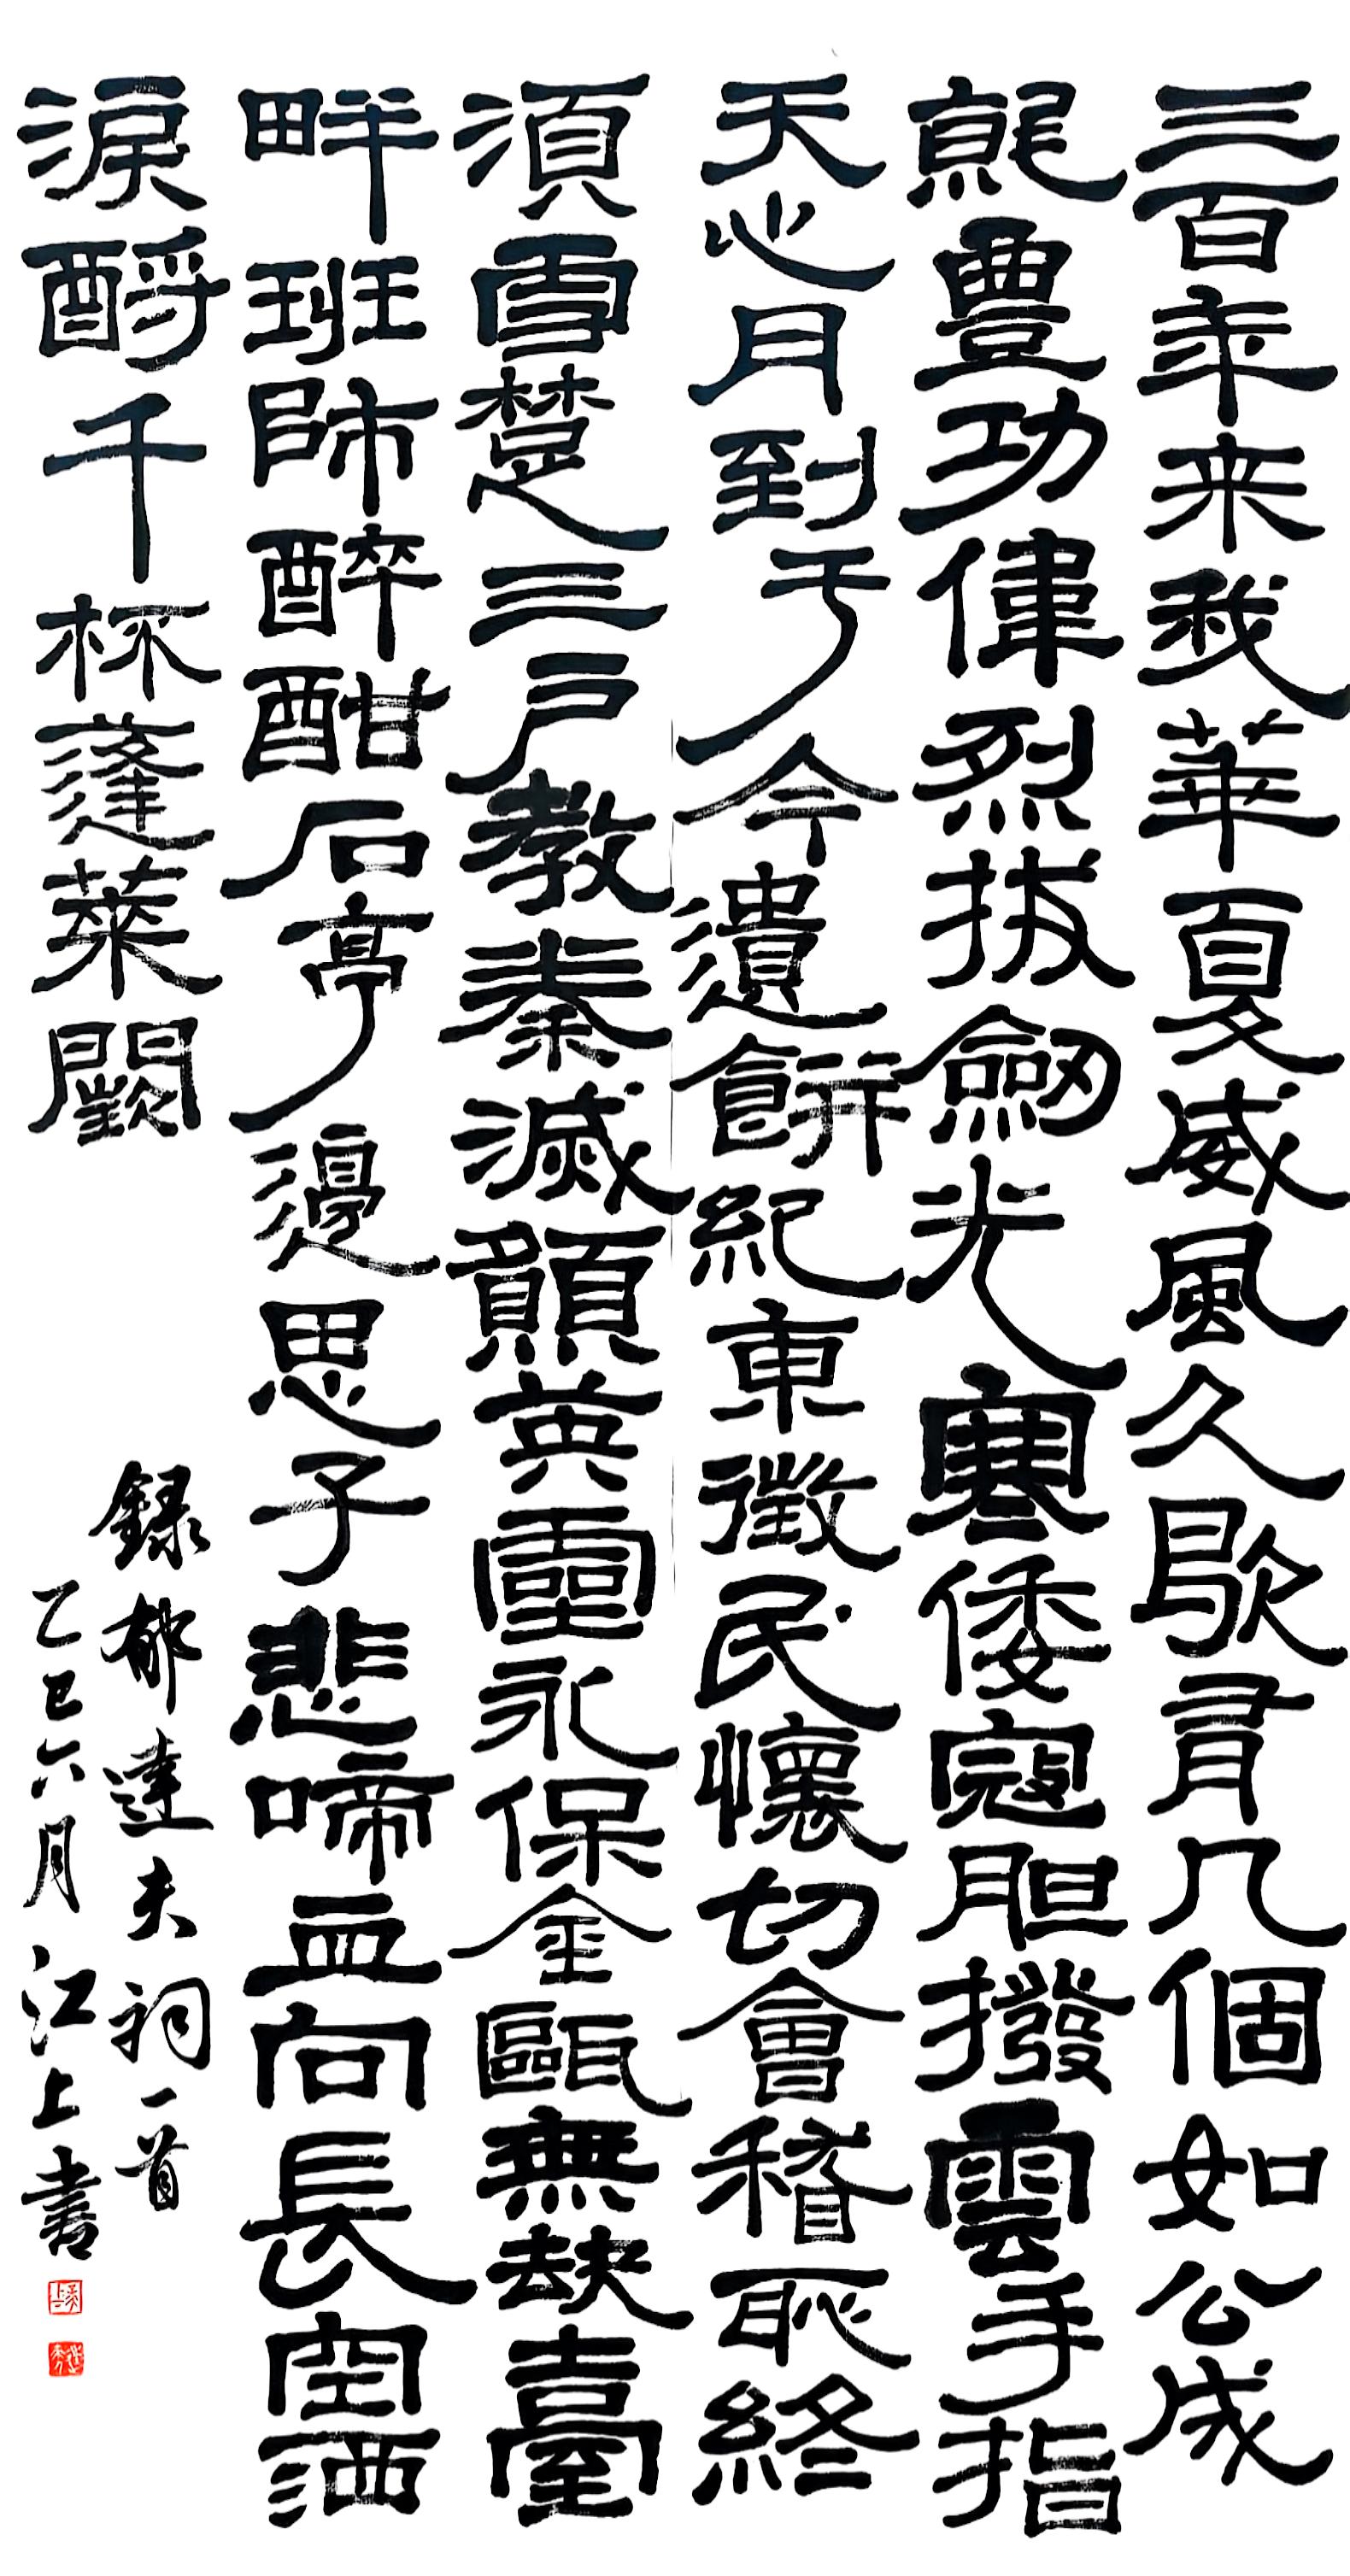 三百年来我華夏威風久歇有几個如公成
就豐功偉烈拔劍光寒倭寇胆撥雲手指
天心月到于今遺餅紀東徵民懷切會稽恥終
須雪楚三戶教秦滅願英靈永保金甌無缺臺
畔班師醉酣石亭邊思子悲啼血向長空洒
淚酹千杯蓬萊闕
録郁達夫祠一首
乙巳六月江上書